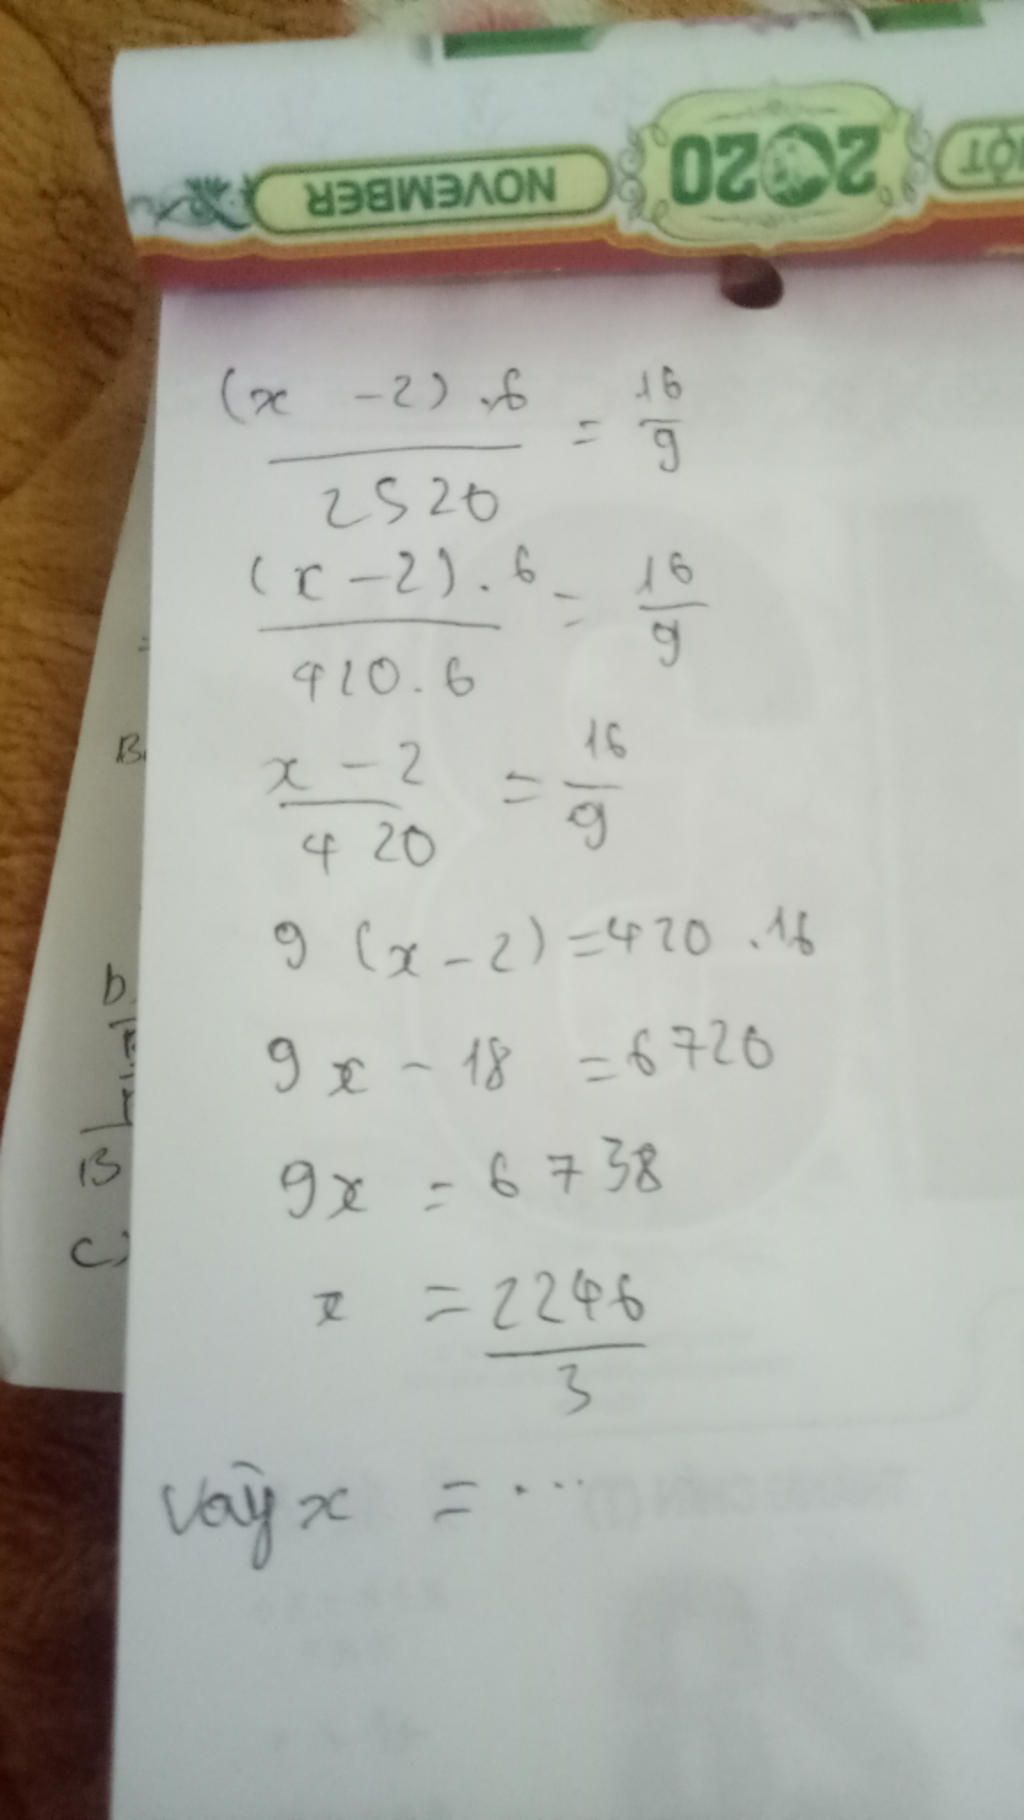 NOVEMBER 2020 MỘT
(x - 2) . 6 / 2520 = 16/9
(x - 2) . 6 / 420 . 6 = 16/9
x - 2 / 420 = 16/9
9 (x - 2) = 420 . 16
9x - 18 = 6720
9x = 6738
x = 2246/3
Vậy x = ...
b
B
c)